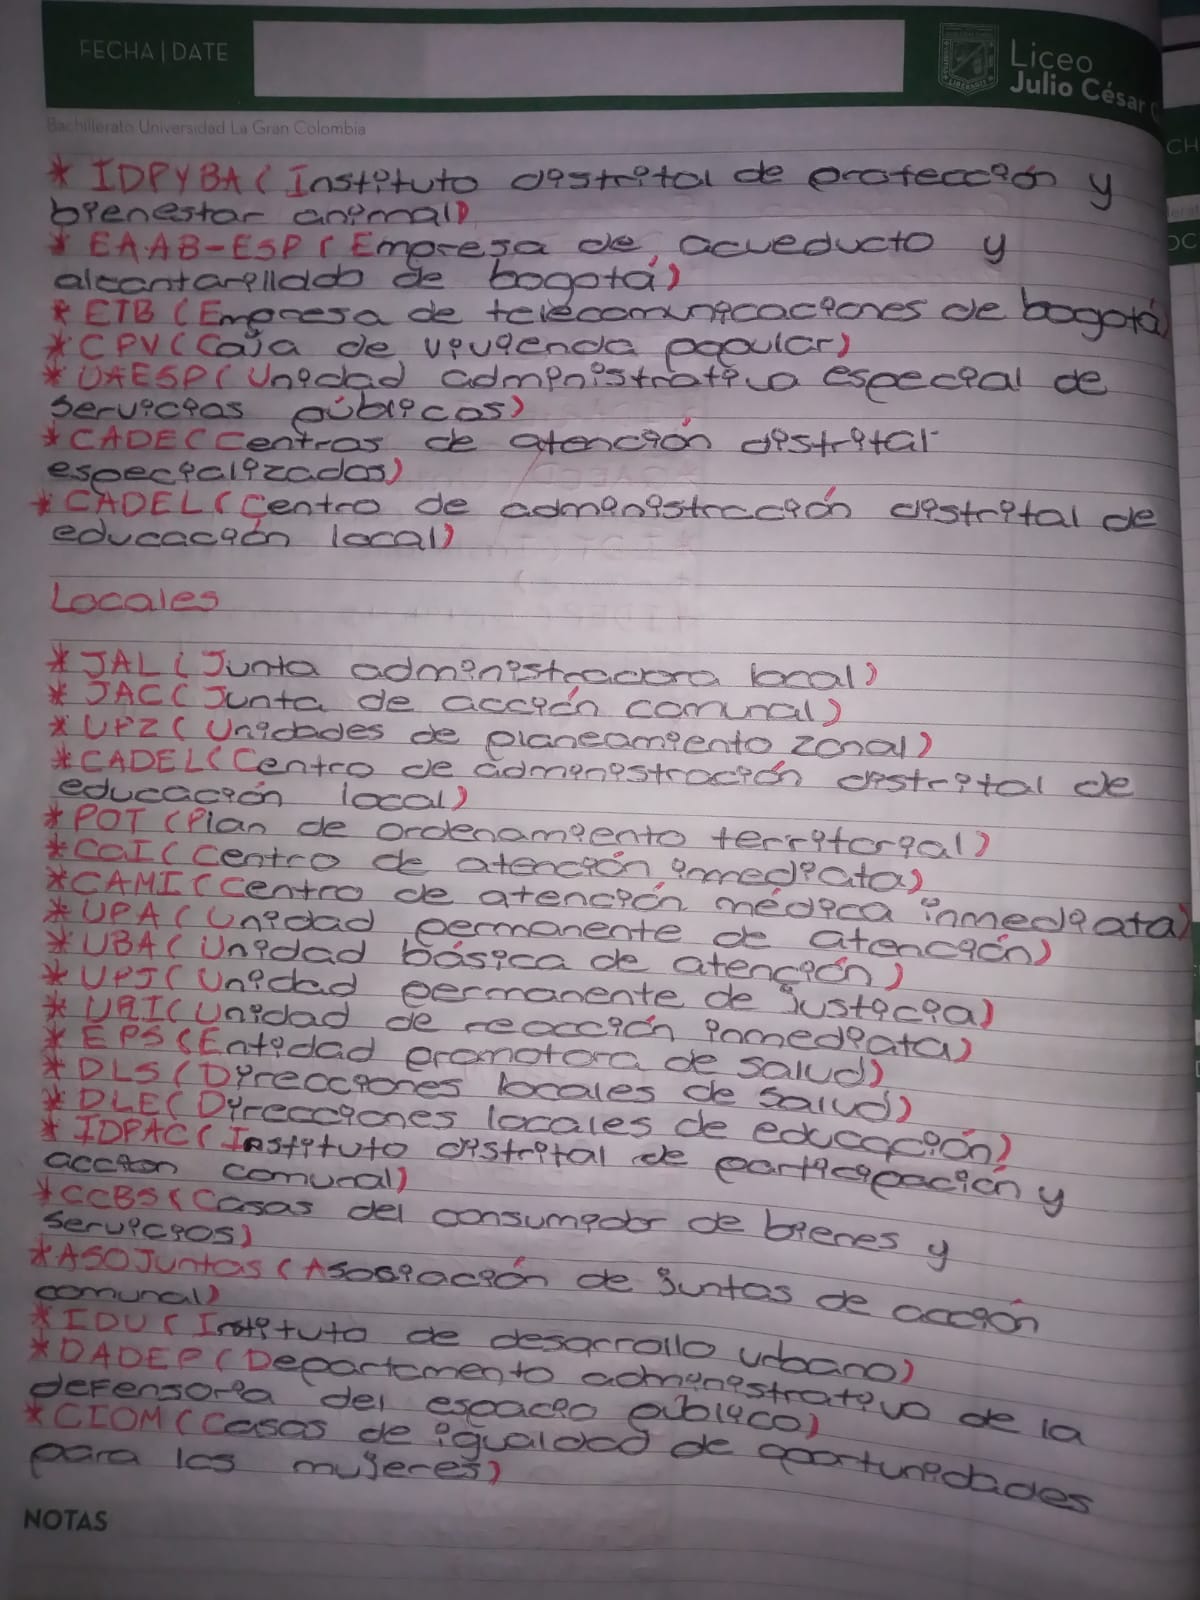 FECHA | DATE
Liceo
Julio César
Bachillerato Universidad La Gran Colombia
* IDPYBA (Instituto distrital de protección y
bienestar animal)
* EAAB-ESP (Empresa de acueducto y
alcantarillado de bogotá)
* ETB (Empresa de telecomunicaciones de bogotá)
* CPV (Caja de vivienda popular)
* UAESP (Unidad administrativa especial de
servicios públicos)
* CADE (Centros de atención distrital
especializados)
* CADEL (Centro de administracción distrital de
educación local)
Locales
* JAL (Junta administradora local)
* JAC (Junta de acción comunal)
* UPZ (Unidades de planeamiento zonal)
* CADEL (Centro de administración distrital de
educación local)
* POT (Plan de ordenamiento territorial)
* CAI (Centro de atención inmediata)
* CAMI (Centro de atención médica inmediata)
* UPA (Unidad permanente de atención)
* UBA (Unidad básica de atención)
* UPJ (Unidad permanente de justicia)
* URI (Unidad de reacción inmediata)
* EPS (Entidad promotora de salud)
* DLS (Direcciones locales de salud)
* DLE (Direcciones locales de educación)
* IDPAC (Instituto distrital de participación y
accion comunal)
* CCBS (Casas del consumidor de bienes y
servicios)
* ASOJuntas (Asosiación de juntas de acción
comunal)
* IDU (Instituto de desarrollo urbano)
* DADEP (Departamento administrativo de la
defensoria del espacio público)
* CIOM (Casas de igualdad de oportunidades
para las mujeres)
NOTAS